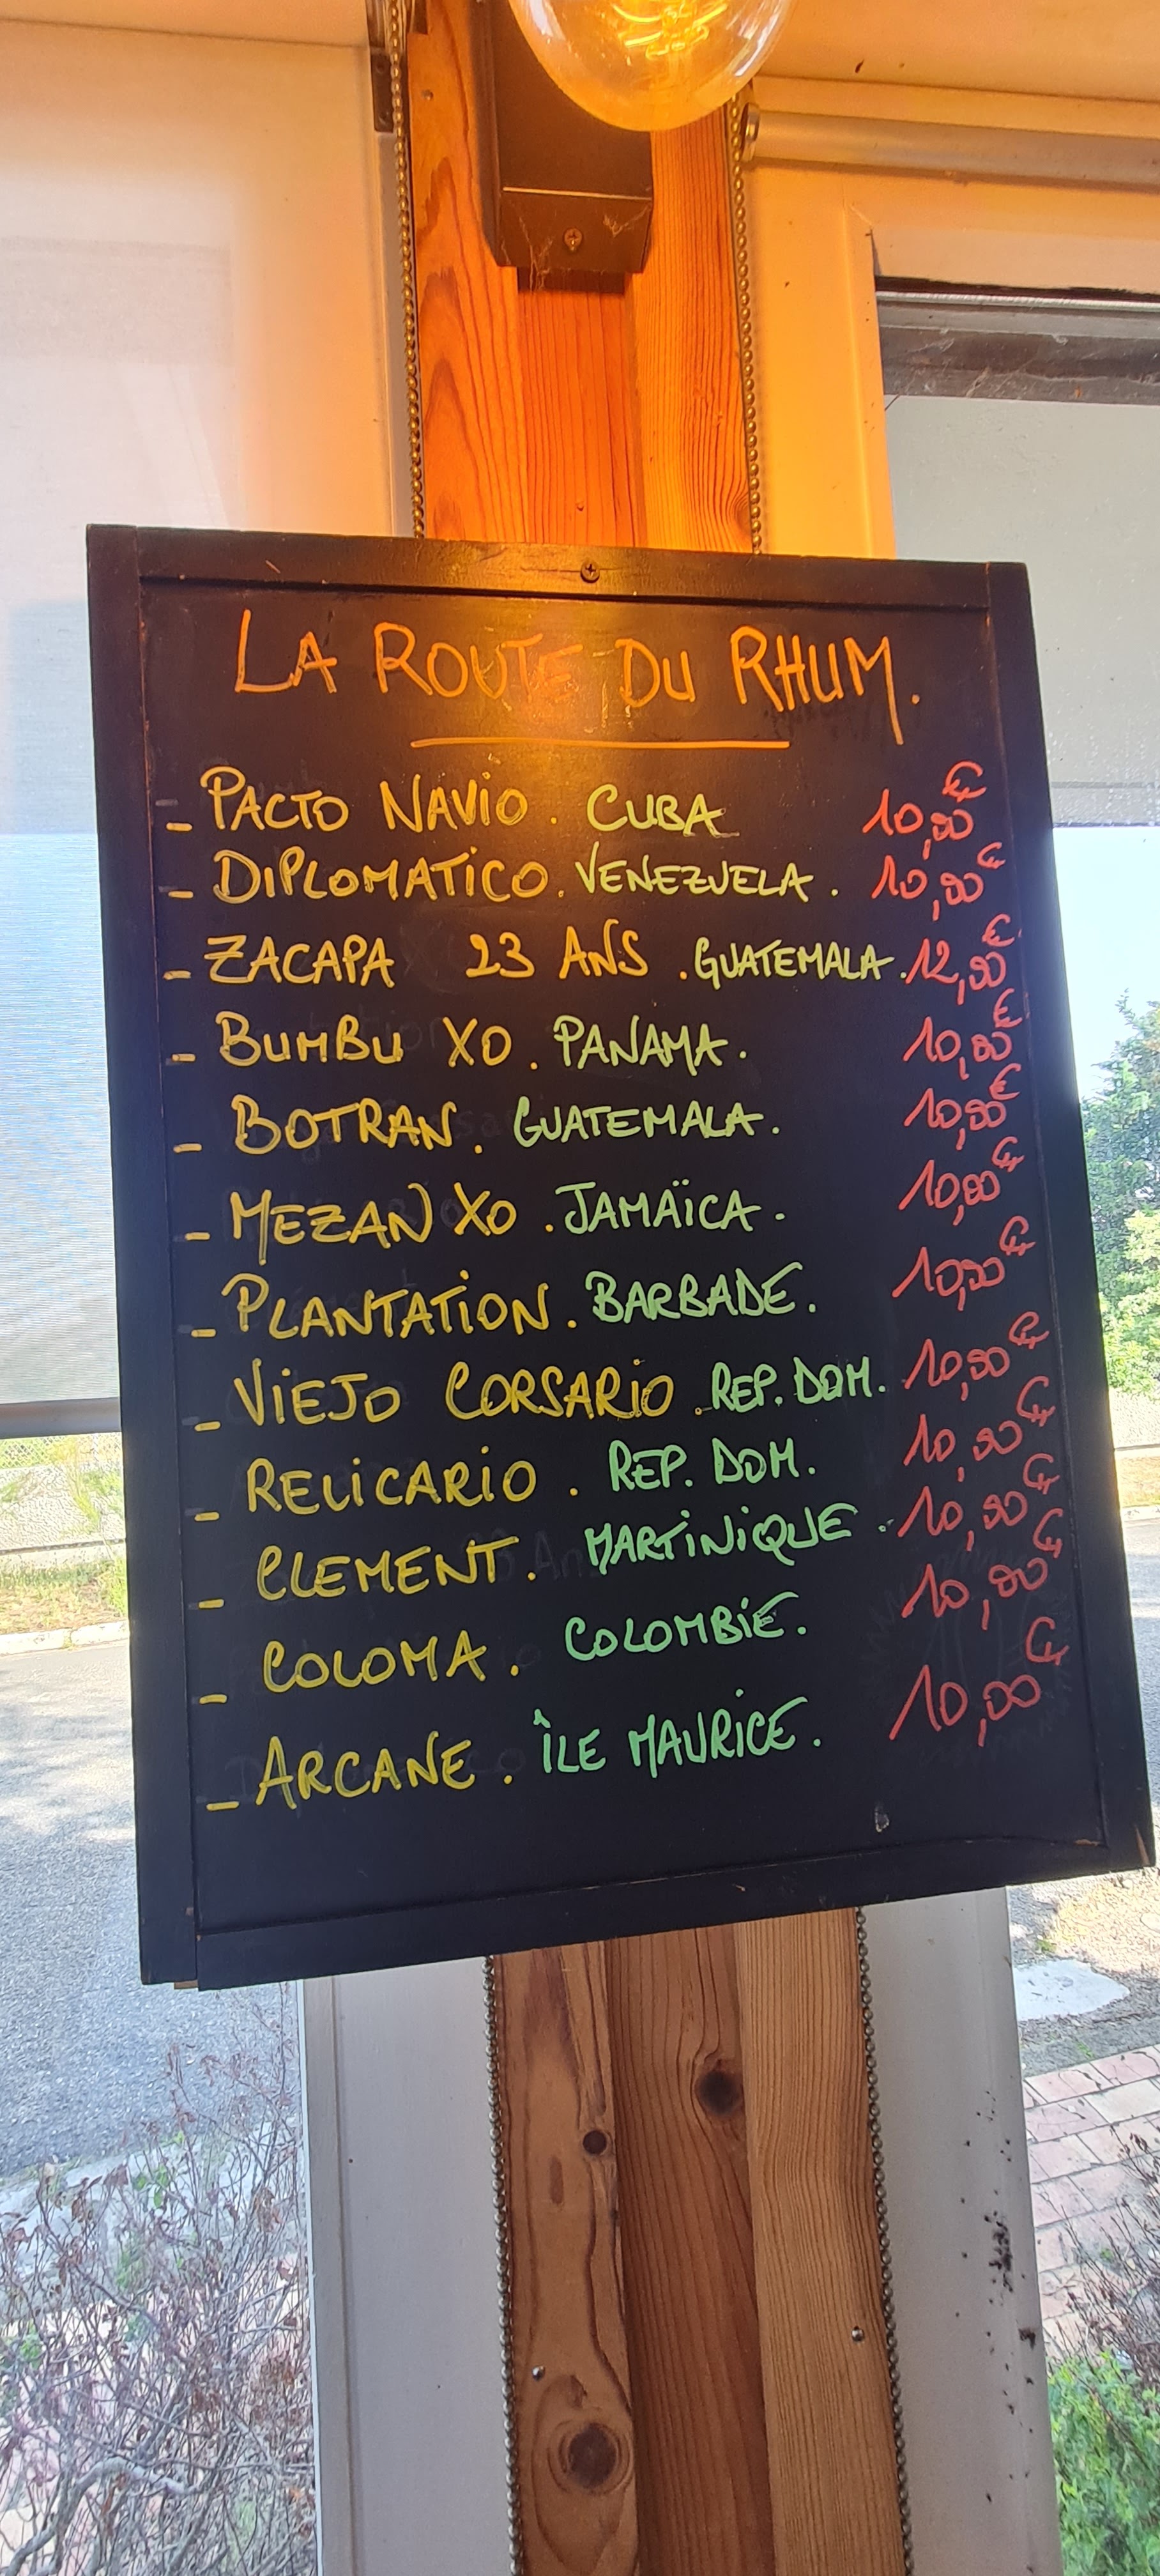 LA ROUTE DU RHUM.
- PACTO NAVIO. CUBA 10,00€
- DIPLOMATICO. VENEZUELA. 10,00€
- ZACAPA 23 ANS. GUATEMALA. 12,00€
- BUMBU XO. PANAMA. 10,00€
- BOTRAN. GUATEMALA. 10,00€
- MEZAN XO. JAMAÏCA. 10,00€
- PLANTATION. BARBADE. 10,00€
- VIEJO CORSARIO. REP. DOM. 10,00€
- RELICARIO. REP. DOM. 10,00€
- CLEMENT. MARTINIQUE. 10,00€
- COLOMA. COLOMBIE. 10,00€
- ARCANE. ÎLE MAURICE. 10,00€